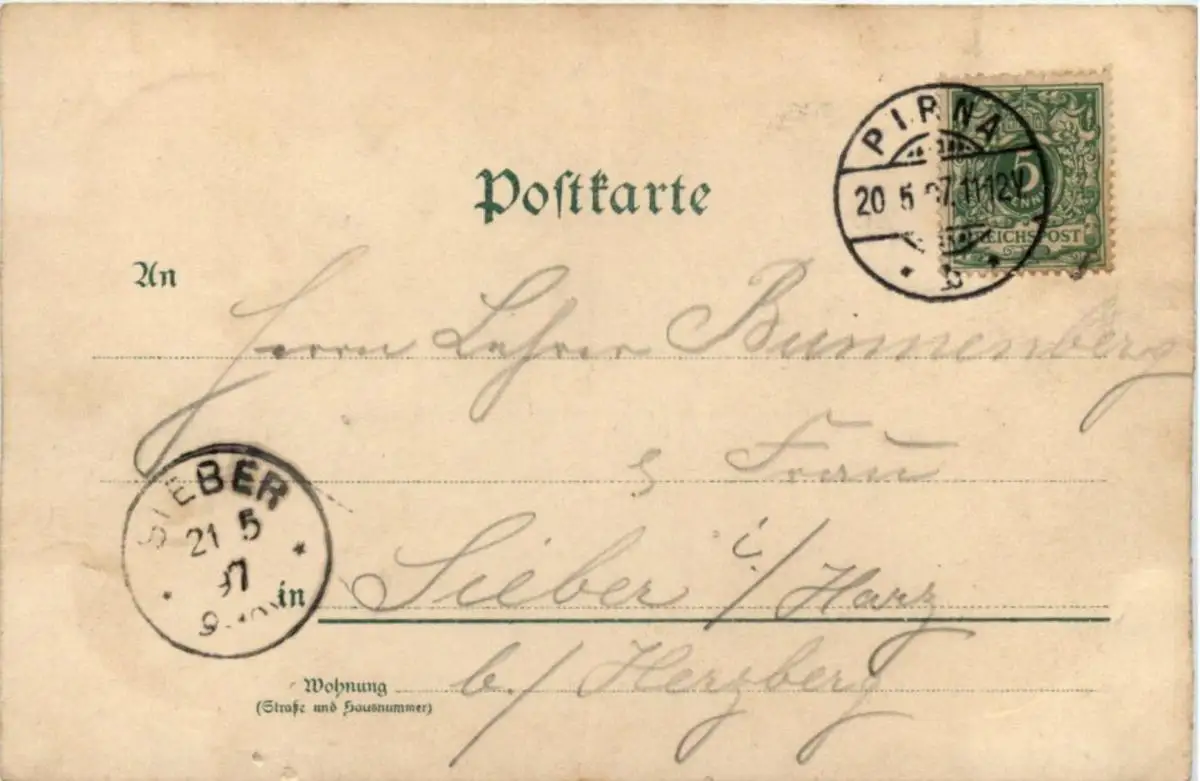 PIRNA
20 5 97.11-12V.
b
5
REICHSPOST
Postkarte
An
Herrn Lehrer Bunnenberg
& Frau
SIEBER
21 5
97
in Sieber i/Harz
Wohnung b./ Herzberg
(Straße und Hausnummer)